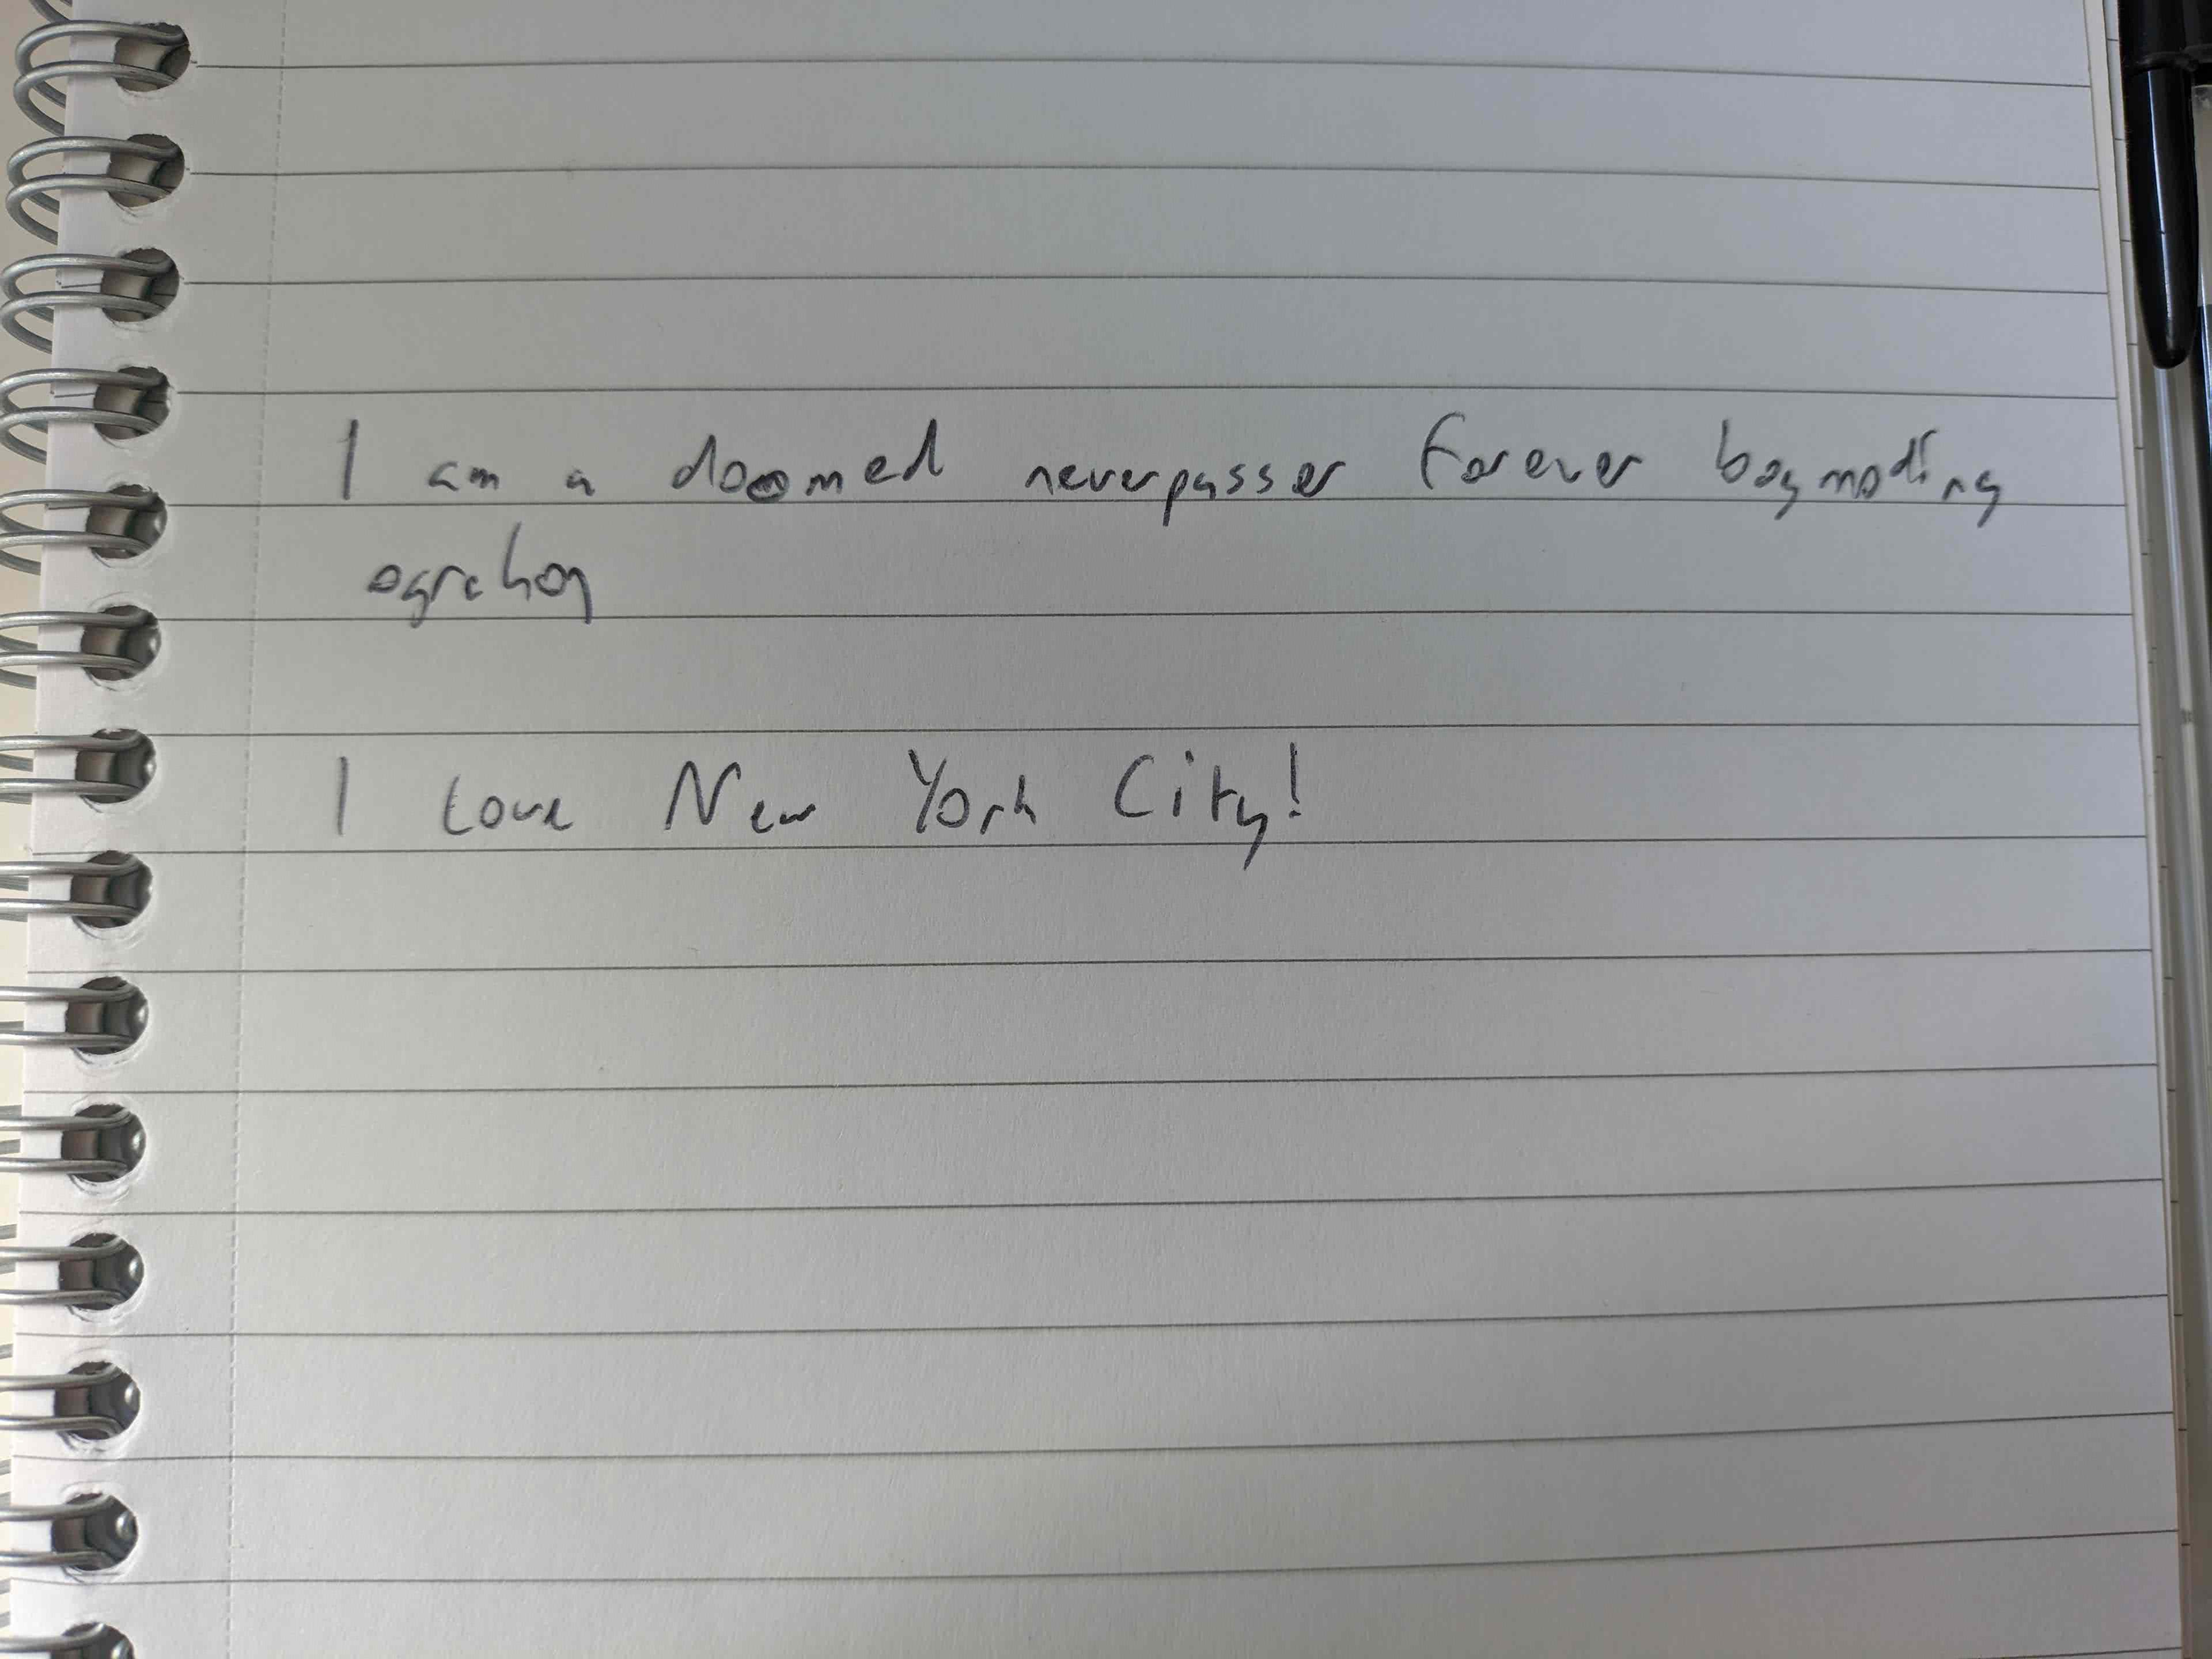 I am a doomed neverpasser forever boymoding
ogrehon
I love New York City!